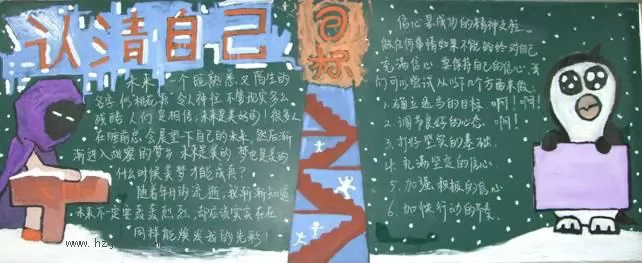 认清自己
目标
未来,一个既熟悉又陌生的
名字,们相龙加,令人神往,不管现实多么
残酷,人们是相信,未来是美好的!很多人
在睡前总会展望一下自己的未来,然后渐
渐进入甜蜜的梦乡,未来是美的,梦也是美的
什么时候美梦才能成真?
随着年月的流逝,我渐渐知道
未来不定要轰轰烈烈,却应该实实在在
同样能焕发我的光彩!
信心是成功的精神支柱。
做任何事情如果不能够给对自己
充满信心,要保持自己的信心,我
们可以尝试从以下几个方面来做。
1.确立适当的目标 啊!啊!
2.调节良好的心态.啊!
3.打好坚实的基础.
4.充满坚定的信心
5.加强积极的信心
6.加快行动的
www.hz